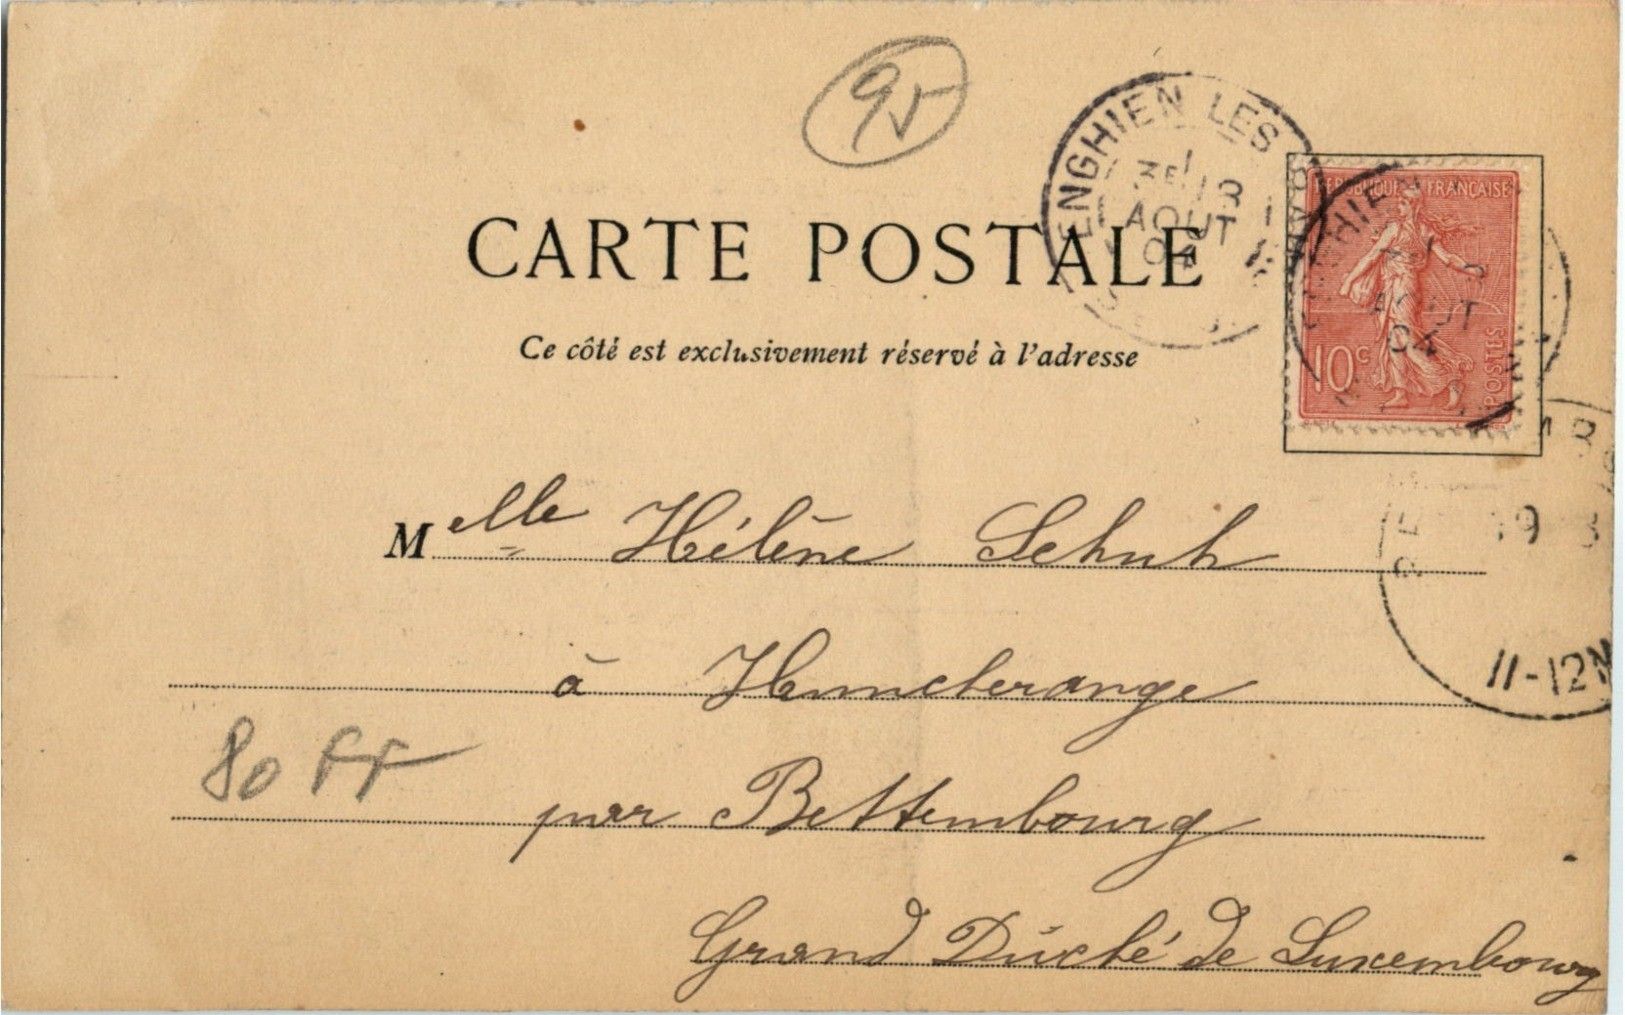 95
ENGHIEN LES BAINS
3E
18
AOUT
04
REPUBLIQUE FRANÇAISE
10c
POSTES
AOUT
04
CARTE POSTALE
Ce côté est exclusivement réservé à l'adresse
Melle Hélène Schuh
19 8
11-12
à Huncherange
80 FF
par Bettembourg
Grand Düché de Luxembourg